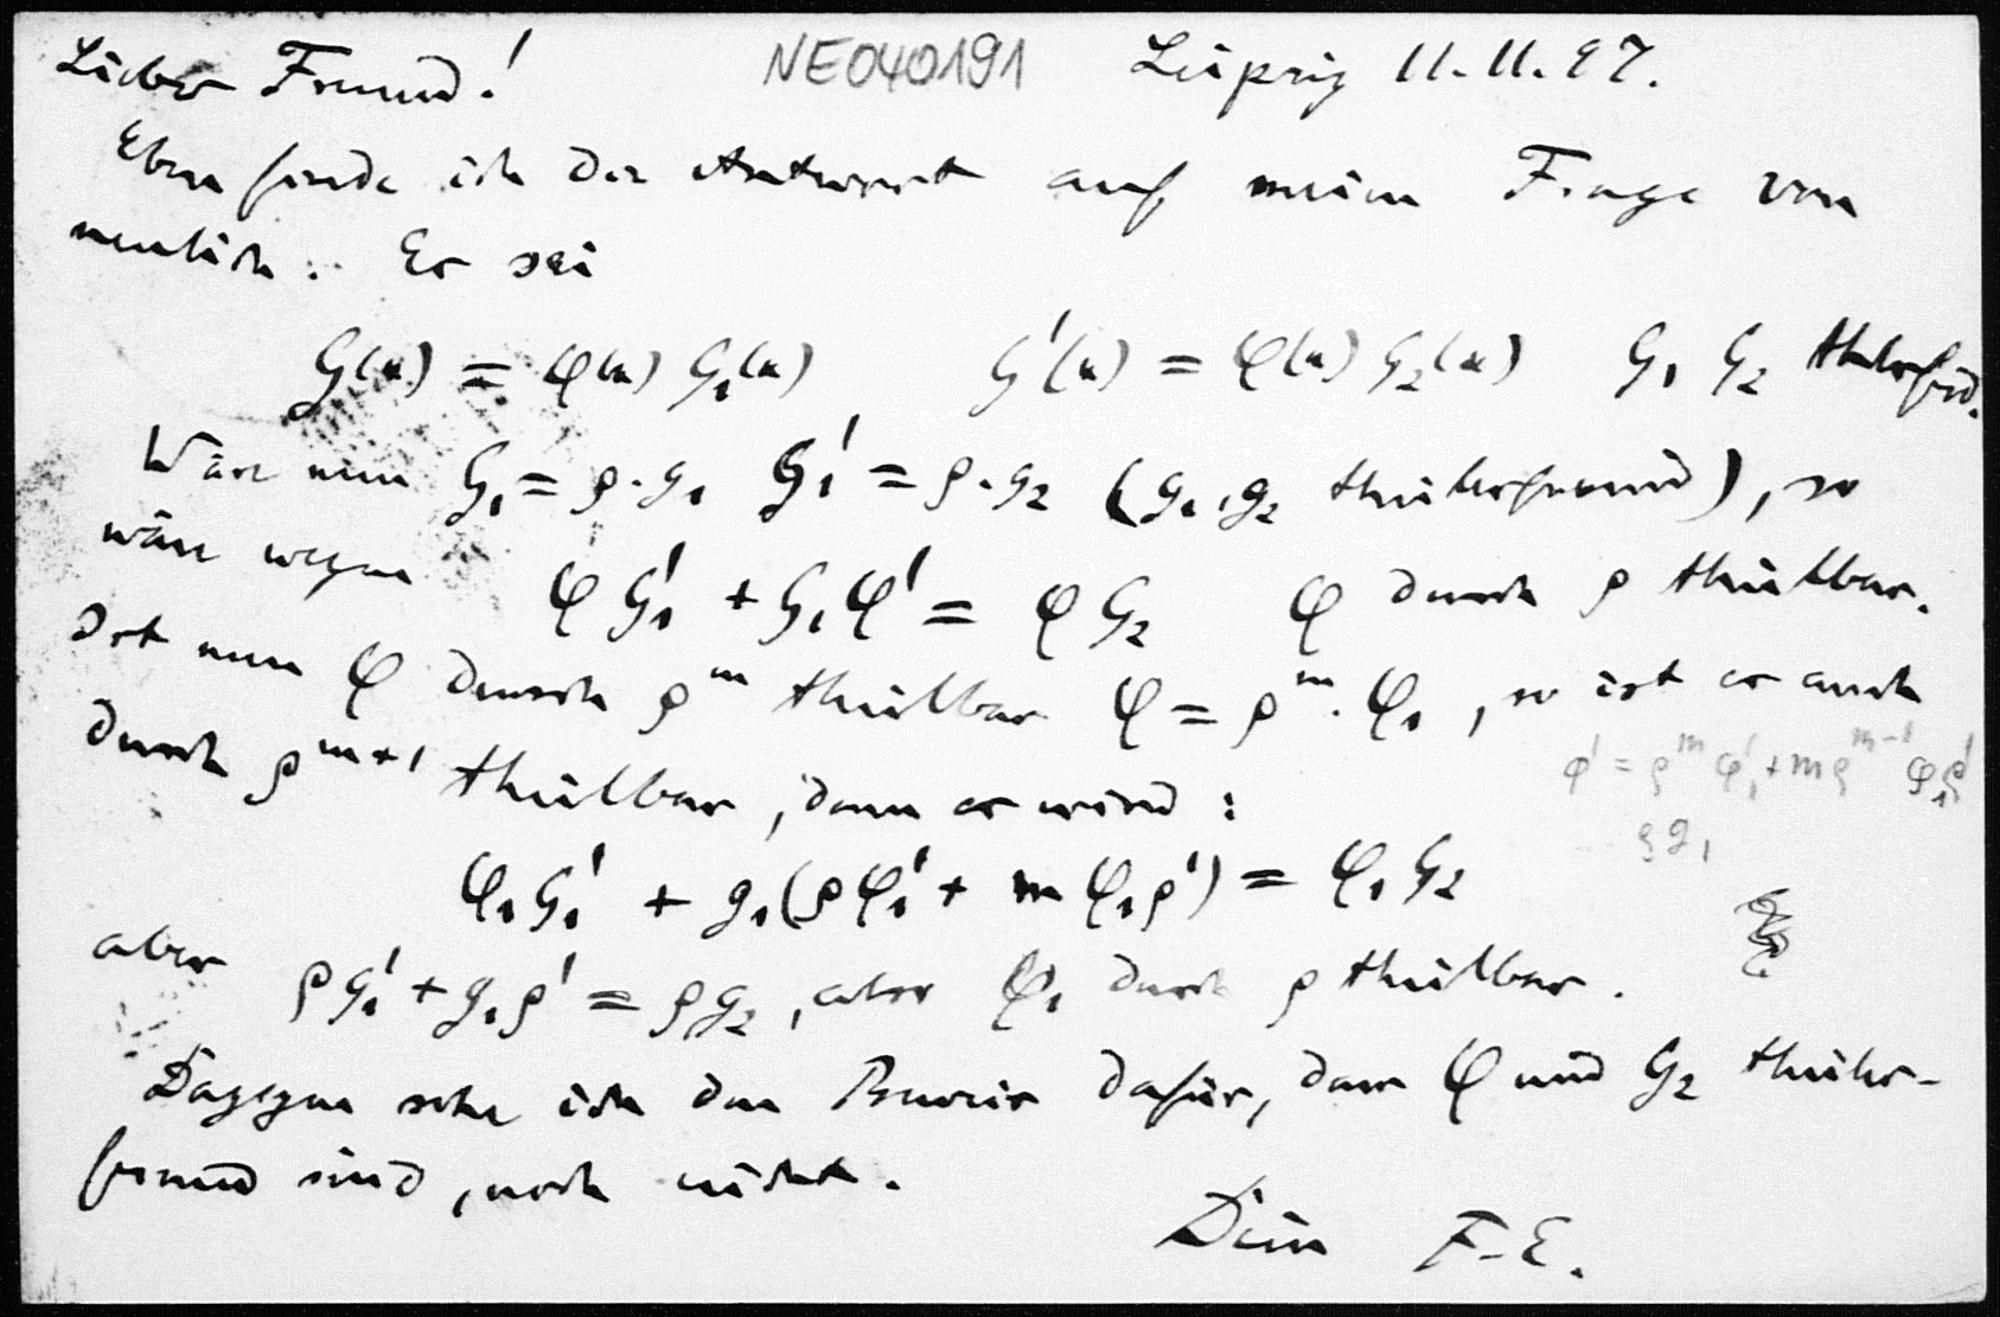 Lieber Freund! NE040191 Leipzig 11.11.97.
Eben finde ich die Antwort auf meine Frage von
neulich. Es sei
G(x) = φ(x) G₁(x) G'(x) = φ(x) G₂(x) G₁ G₂ theilerfrd.
Wäre nun G₁ = ρ·g₁ G₁' = ρ·g₂ (g₁, g₂ theilerfremd), so
wäre wegen φ G₁' + G₁ φ' = φ G₂ φ durch ρ theilbar.
Ist nun φ durch ρᵐ theilbar φ = ρᵐ·φ₁, so ist es auch
durch ρᵐ⁺¹ theilbar, denn es wird:
φ' = ρᵐ φ₁' + mρᵐ⁻¹ φ₁ρ'
ρg₁
φ₁G₁' + g₁(ρφ₁' + m φ₁ρ') = φ₁ G₂
aber ρg₁' + g₁ρ' = ρg₂, also φ₁ durch ρ theilbar.
Dagegen sehe ich den Beweis dafür, dass φ und G₂ theiler-
fremd sind, noch nicht.
Dein F. E.